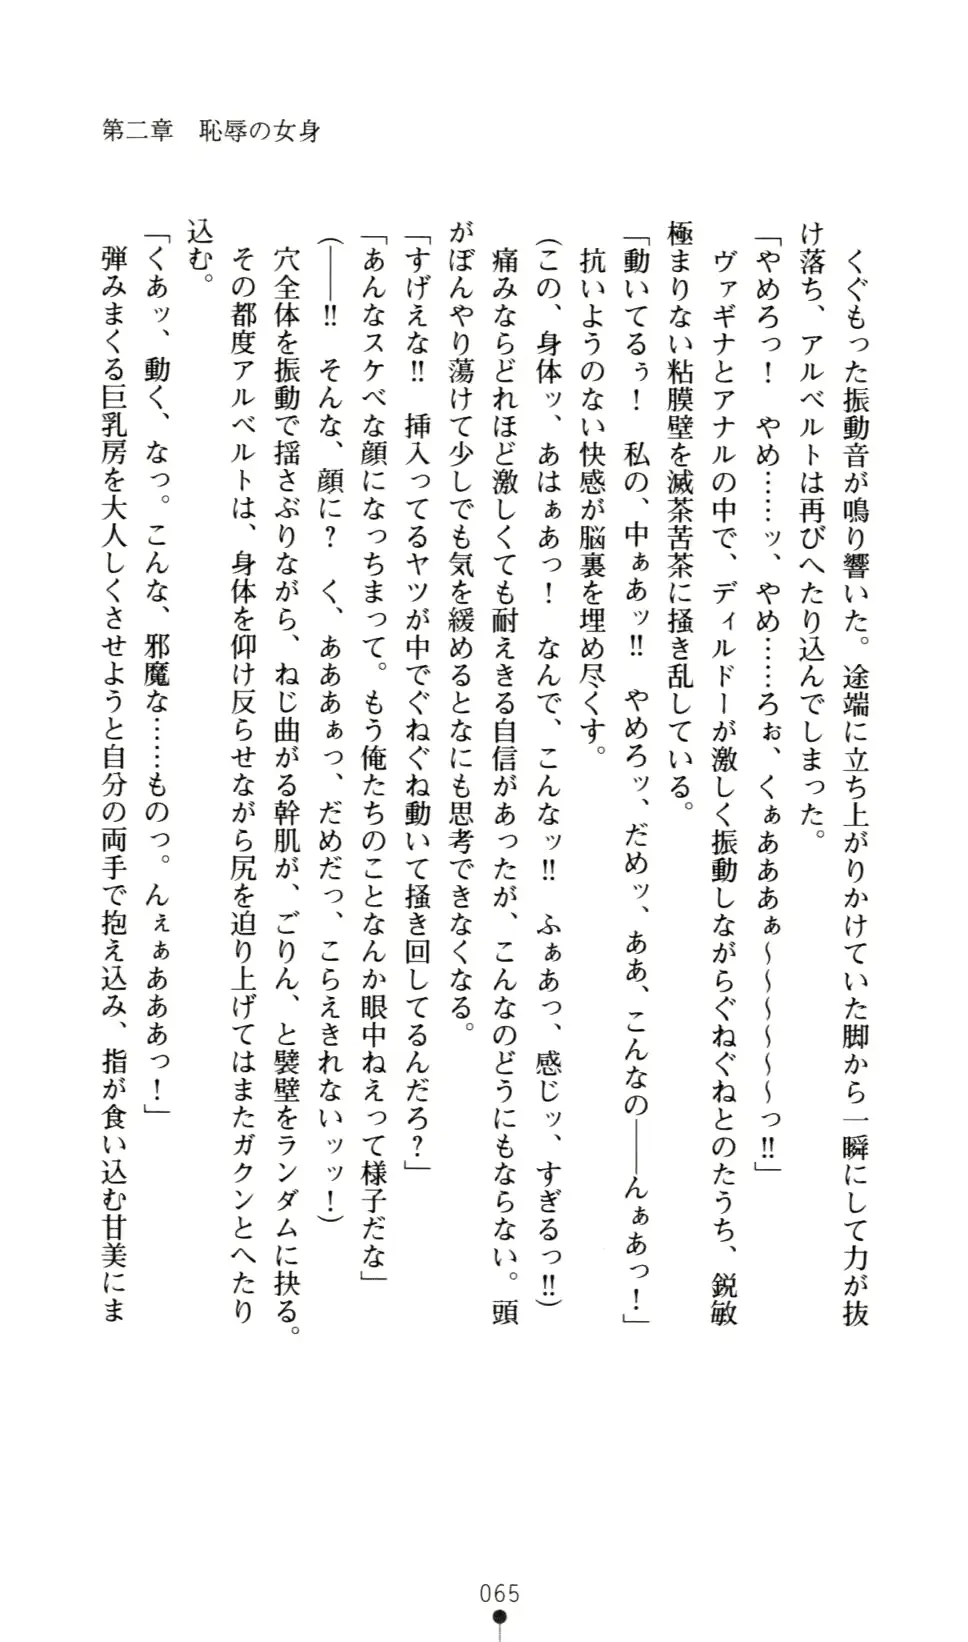 第二章　恥辱の女身
　くぐもった振動音が鳴り響いた。途端に立ち上がりかけていた脚から一瞬にして力が抜
け落ち、アルベルトは再びへたり込んでしまった。
「やめろっ！　やめ……ッ、やめ……ろぉ、くぁあああぁ～～～～～～っ‼」
　ヴァギナとアナルの中で、ディルドーが激しく振動しながらぐねぐねとのたうち、鋭敏
極まりない粘膜壁を滅茶苦茶に掻き乱している。
「動いてるぅ！　私の、中ぁあッ‼　やめろッ、だめッ、ああ、こんなの――んぁあっ！」
　抗いようのない快感が脳裏を埋め尽くす。
（この、身体ッ、あはぁあっ！　なんで、こんなッ‼　ふぁあっ、感じッ、すぎるっ‼）
　痛みならどれほど激しくても耐えきる自信があったが、こんなのどうにもならない。頭
がぼんやり蕩けて少しでも気を緩めるとなにも思考できなくなる。
「すげえな‼　挿入ってるヤツが中でぐねぐね動いて掻き回してるんだろ？」
「あんなスケベな顔になっちまって。もう俺たちのことなんか眼中ねえって様子だな」
（――‼　そんな、顔に？　く、あああぁっ、だめだっ、こらえきれないッッ！）
　穴全体を振動で揺さぶりながら、ねじ曲がる幹肌が、ごりん、と襞壁をランダムに抉る。
　その都度アルベルトは、身体を仰け反らせながら尻を迫り上げてはまたガクンとへたり
込む。
「くあッ、動く、なっ。こんな、邪魔な……ものっ。んぇぁああぁっ！」
　弾みまくる巨乳房を大人しくさせようと自分の両手で抱え込み、指が食い込む甘美にま
065